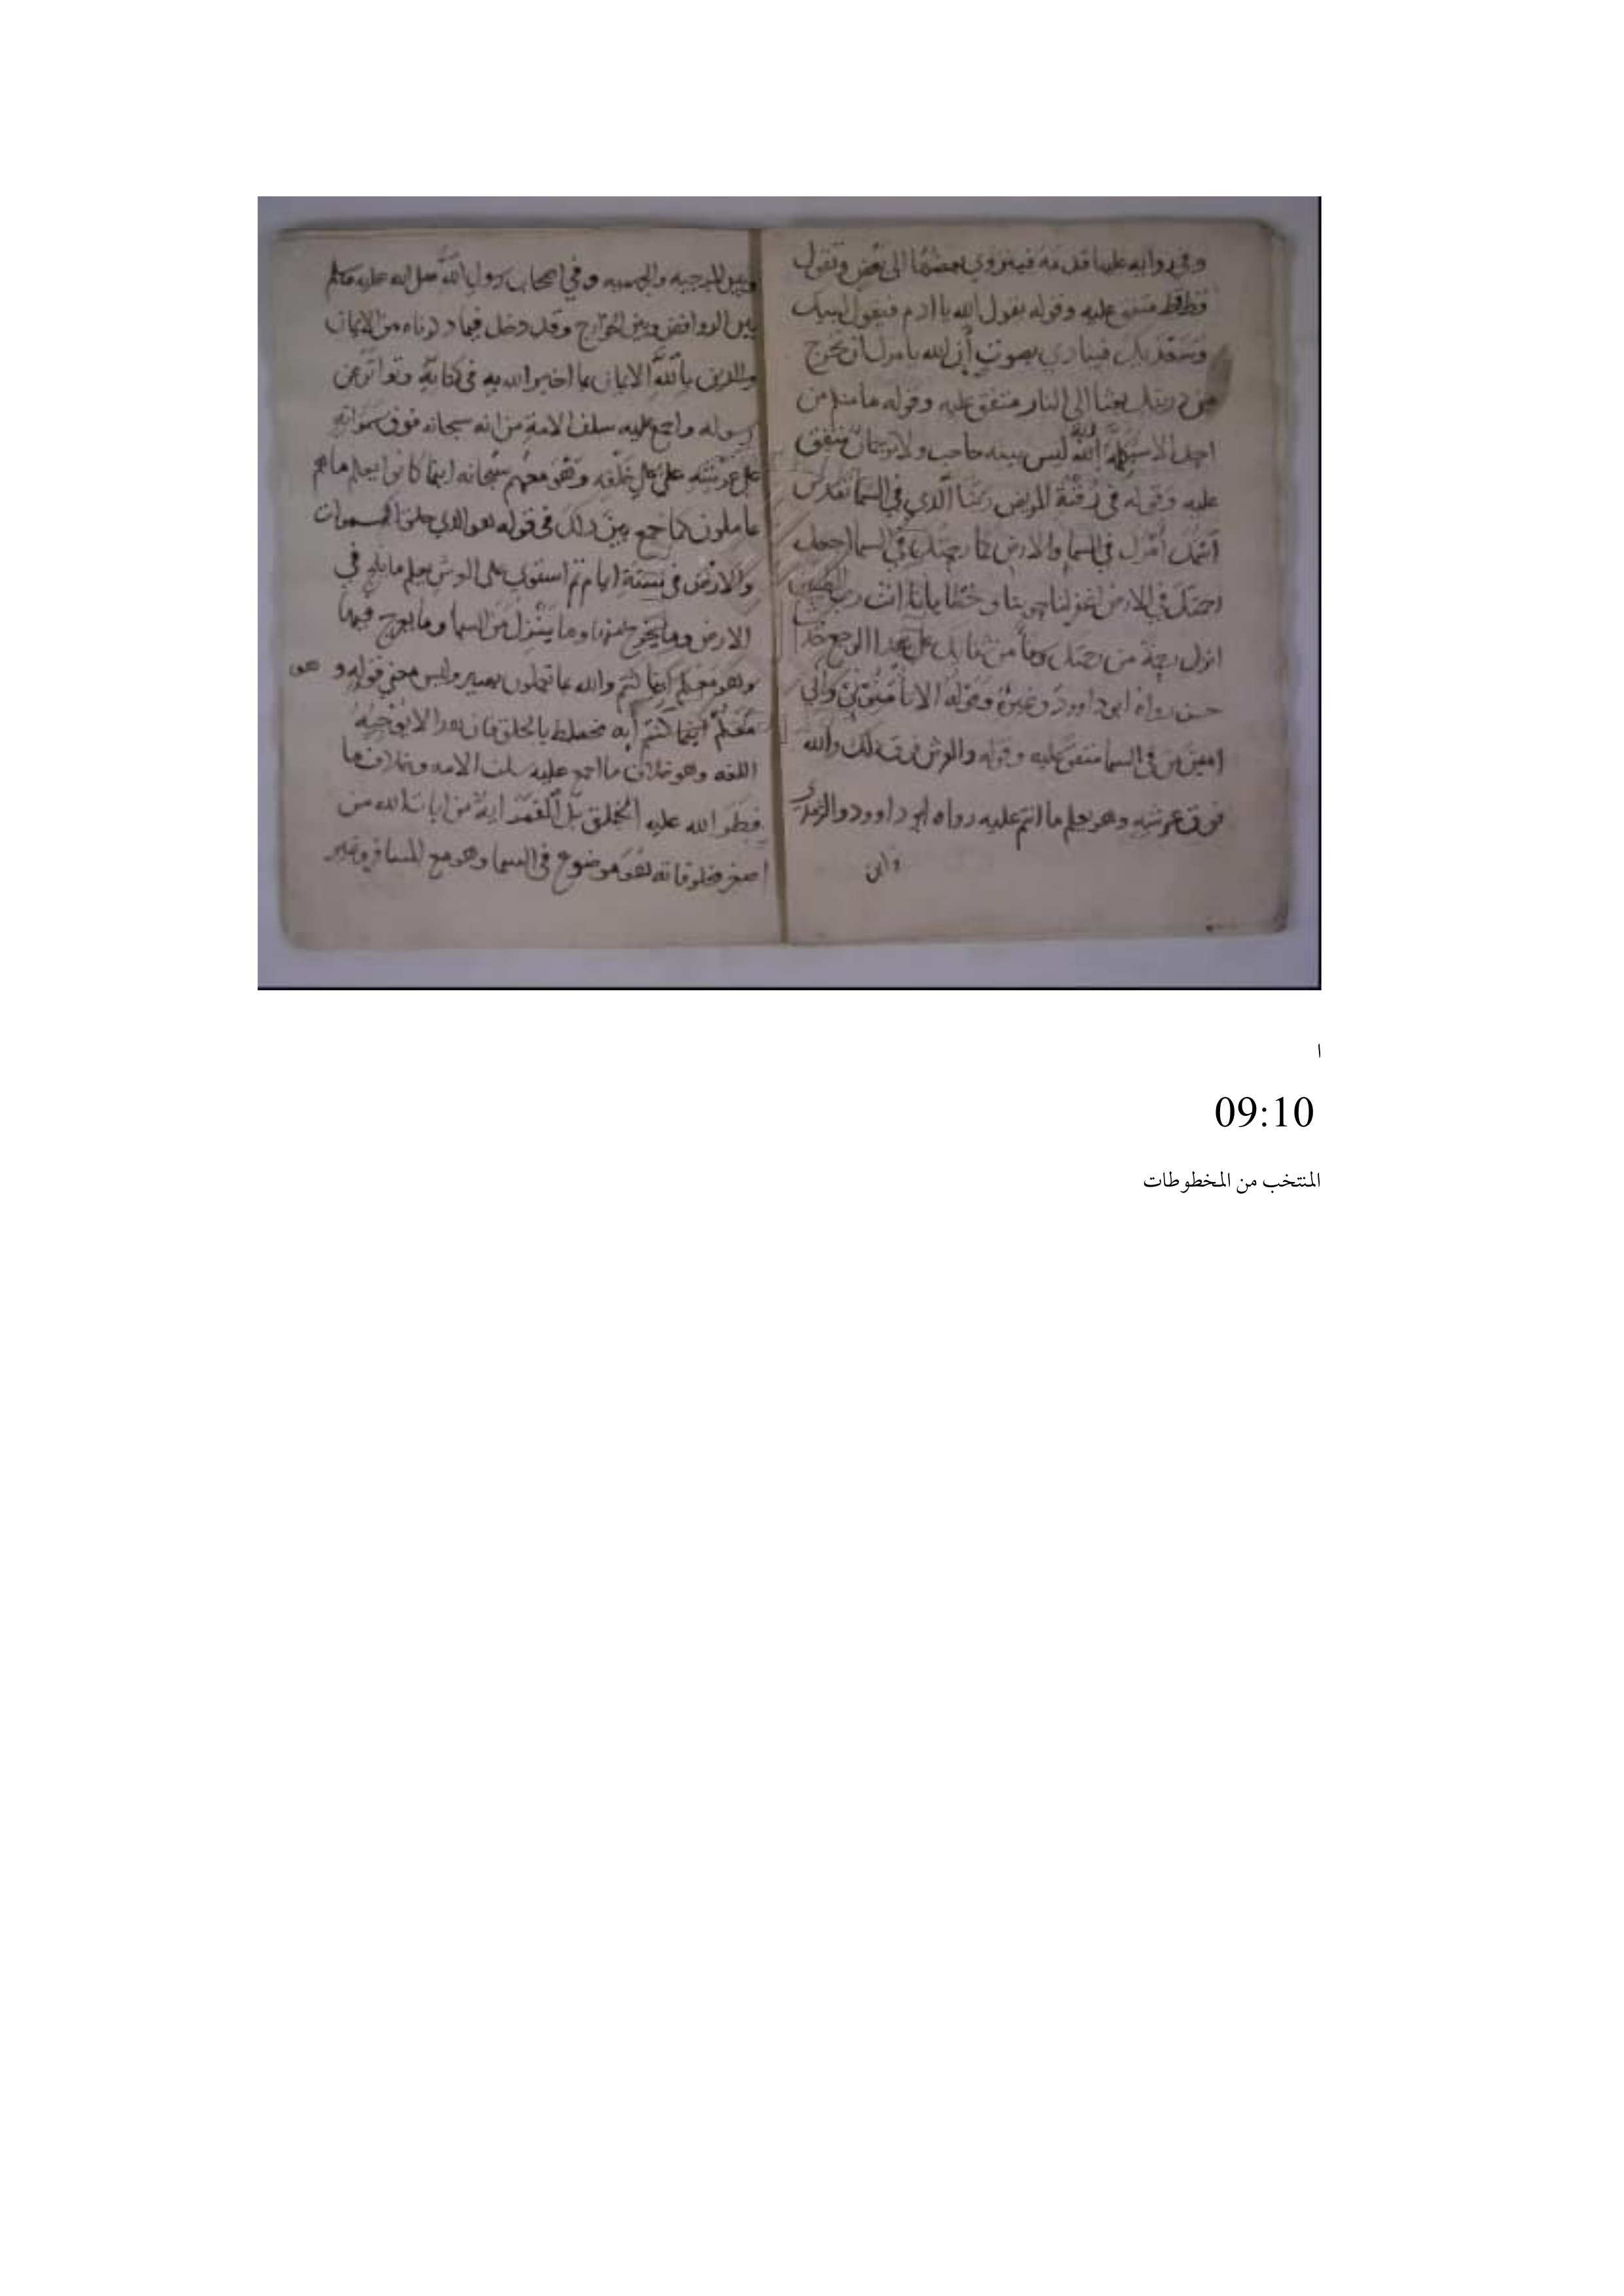 وفي روايه عليها قدمه فينزوي بعضها الى بعض وتقول
قط قط متفق عليه وقوله يقول الله يا ادم فيقول لبيك
وسعديك فينادي بصوت أن الله يامرك ان تخرج
من ذريتك بعثا الى النار متفق عليه وقوله ما منكم من
احد الا سيكلمه الله ليس بينه حاجب ولا ترجمان متفق
عليه وقوله في رقية المريض ربنا الذي في السما تقدس
اسمك أمرك في السما والارض كما رحمتك في السما اجعل
رحمتك في الارض اغفر لنا حوبنا وخطايانا انت رب الطيبين
انزل رحمة من رحمتك وشفا من شفايك على هذا الوجع
حسن رواه ابي داوود وغيره وقوله الا تأمنوني وأني
امين من في السما متفق عليه وقوله والعرش فوق ذلك والله
فوق عرشه وهو يعلم ما انتم عليه رواه ابو داوود والترمذي
وابن
وبين المرجيه والجهميه وفي اصحاب رسول الله صلى الله عليه وسلم
بين الروافض وبين الخوارج وقد دخل فيما ذكرناه من الايمان
بالله الايمان بما اخبر الله به في كتابه وتواتر عن
رسوله واجمع عليه سلف الامة من انه سبحانه فوق سمواته
على عرشه علي على خلقه وهو معهم سبحانه اينما كانوا يعلم ما هم
عاملون كما جمع بين ذلك في قوله هو الذي خلق السموات
والارض في ستة ايام ثم استوى على العرش يعلم ما يلج في
الارض وما يخرج منها وما ينزل من السما وما يعرج فيها
وهو معكم اينما كنتم والله بما تعملون بصير وليس معني قوله و هو
معكم اينما كنتم أنه مختلط بالخلق فان هذا لا توجبه
اللغه وهو خلاف ما اجمع عليه سلف الامه وخلاف ما
فطر الله عليه الخلق بل القمر اية من ايات الله من
اصغر مخلوقاته هو موضوع في السما وهو مع المسافر وغير
ا
09:10
المنتخب من المخطوطات